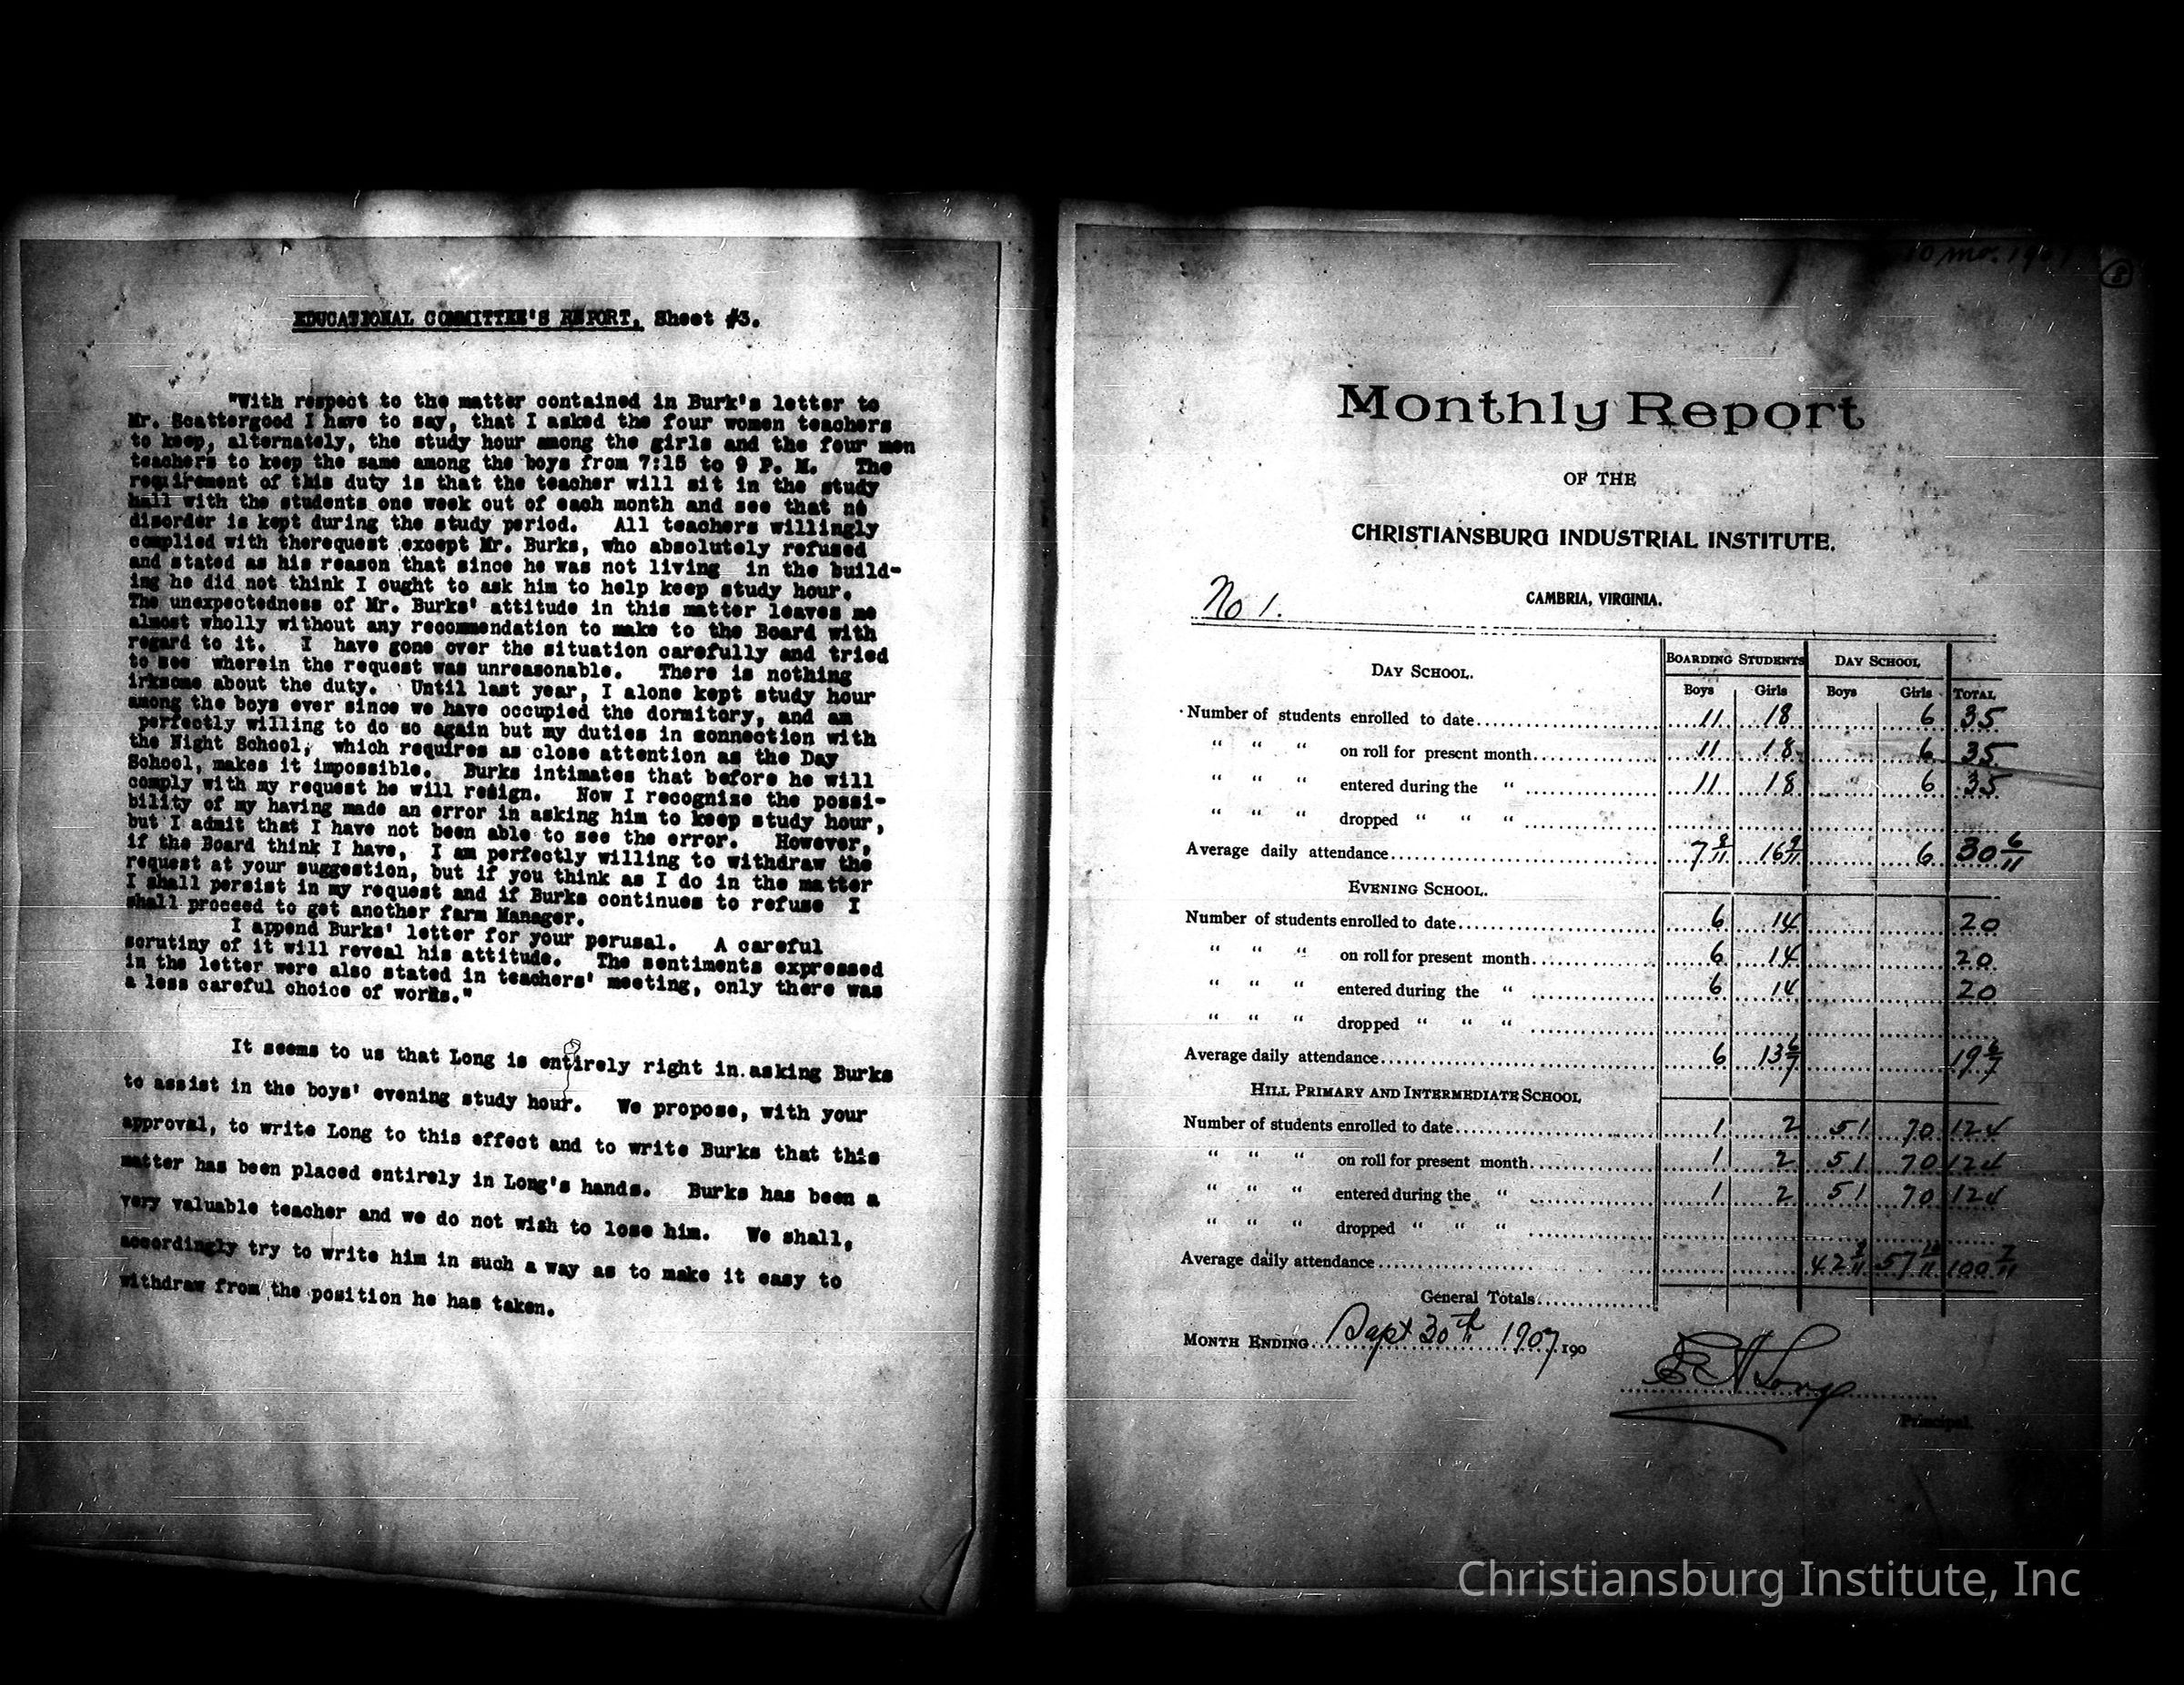 EDUCATIONAL COMMITTEE'S REPORT, Sheet #3.
"With respect to the matter contained in Burk's letter to
Mr. Scattergood I have to say, that I asked the four women teachers
to keep, alternately, the study hour among the girls and the four men
teachers to keep the same among the boys from 7:15 to 9 P. M. The
requirement of this duty is that the teacher will sit in the study
hall with the students one week out of each month and see that no
disorder is kept during the study period. All teachers willingly
complied with therequest except Mr. Burks, who absolutely refused
and stated as his reason that since he was not living in the build-
ing he did not think I ought to ask him to help keep study hour.
The unexpectedness of Mr. Burks' attitude in this matter leaves me
almost wholly without any recommendation to make to the Board with
regard to it. I have gone over the situation carefully and tried
to see wherein the request was unreasonable. There is nothing
irksome about the duty. Until last year, I alone kept study hour
among the boys ever since we have occupied the dormitory, and am
perfectly willing to do so again but my duties in connection with
the Night School, which requires as close attention as the Day
School, makes it impossible. Burks intimates that before he will
comply with my request he will resign. Now I recognize the possi-
bility of my having made an error in asking him to keep study hour,
but I admit that I have not been able to see the error. However,
if the Board think I have, I am perfectly willing to withdraw the
request at your suggestion, but if you think as I do in the matter
I shall persist in my request and if Burks continues to refuse I
shall proceed to get another farm Manager.
I append Burks' letter for your perusal. A careful
scrutiny of it will reveal his attitude. The sentiments expressed
in the letter were also stated in teachers' meeting, only there was
a less careful choice of words."
It seems to us that Long is entirely right in asking Burks
to assist in the boys' evening study hour. We propose, with your
approval, to write Long to this effect and to write Burks that this
matter has been placed entirely in Long's hands. Burks has been a
very valuable teacher and we do not wish to lose him. We shall,
accordingly try to write him in such a way as to make it easy to
withdraw from the position he has taken.
10 mo. 1907
8
Monthly Report
OF THE
CHRISTIANSBURG INDUSTRIAL INSTITUTE.
CAMBRIA, VIRGINIA.
No 1.
DAY SCHOOL. BOARDING STUDENTS DAY SCHOOL
Boys Girls Boys Girls TOTAL
Number of students enrolled to date 11 18 6 35
" " " on roll for present month 11 18 6 35
" " " entered during the " 11 18 6 35
" " " dropped " " "
Average daily attendance 7 8/11 16 9/11 6 30 6/11
EVENING SCHOOL.
Number of students enrolled to date 6 14 20
" " " on roll for present month 6 14 20
" " " entered during the " 6 14 20
" " " dropped " " "
Average daily attendance 6 13 6/7 19 6/7
HILL PRIMARY AND INTERMEDIATE SCHOOL
Number of students enrolled to date 1 2 51 70 124
" " " on roll for present month 1 2 51 70 124
" " " entered during the " 1 2 51 70 124
" " " dropped " " "
Average daily attendance 42 57 100 7/11
General Totals
MONTH ENDING Sept 30th 1907 190
E A Long
Principal.
Christiansburg Institute, Inc